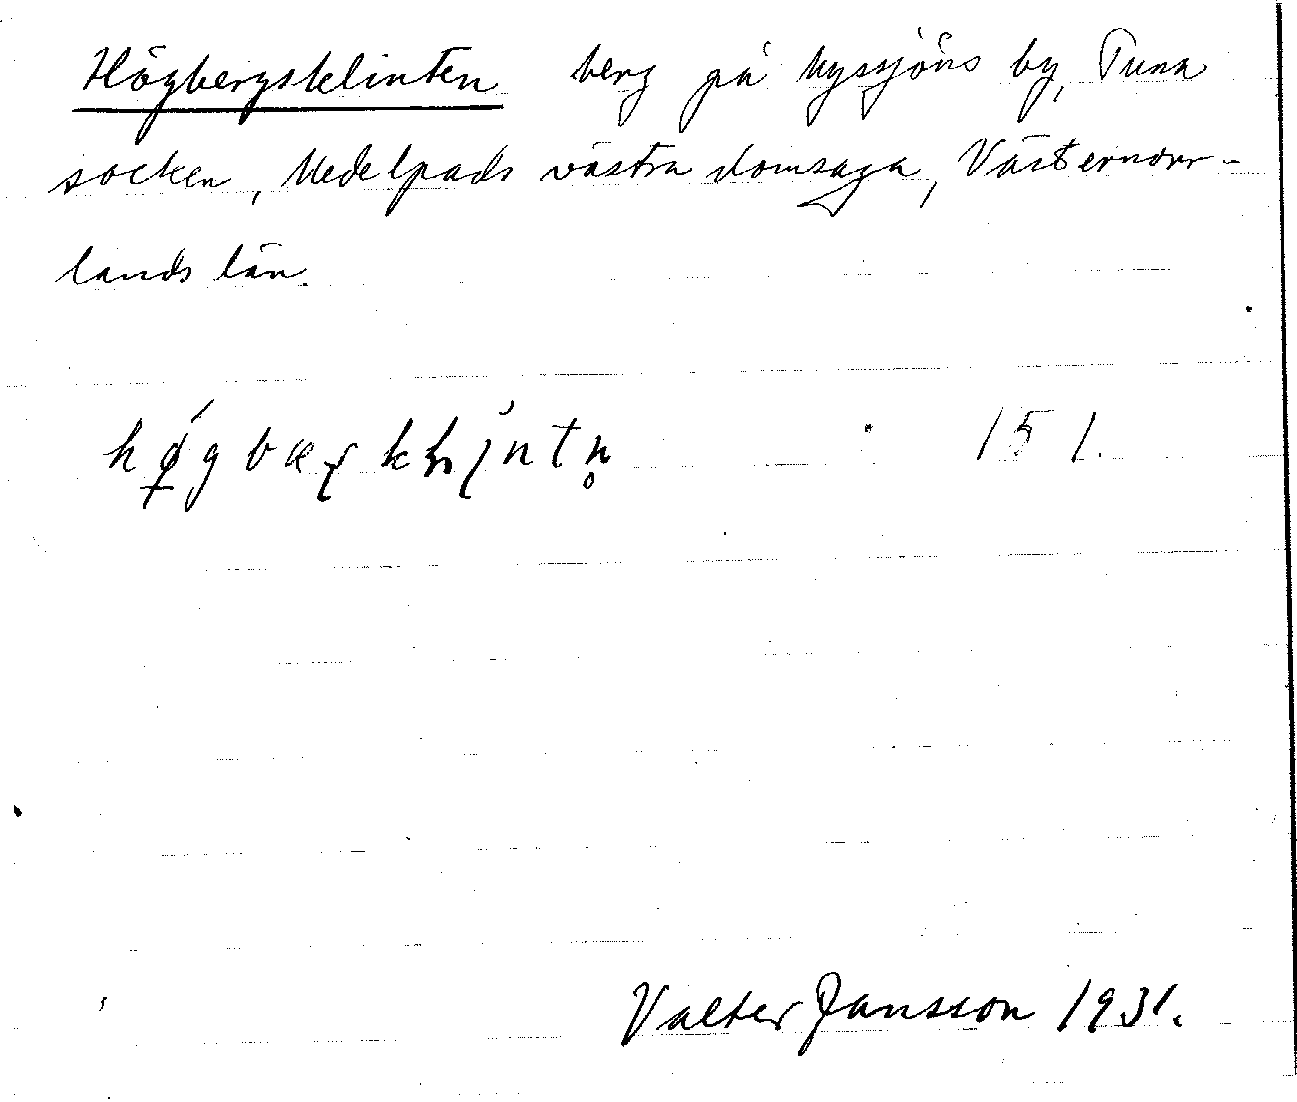 Högbergsklinten berg på Nyssjöns by, Tuna
socken, Medelpads västra domsaga, Västernorr-
lands län.
151.
Valter Jansson 1931.